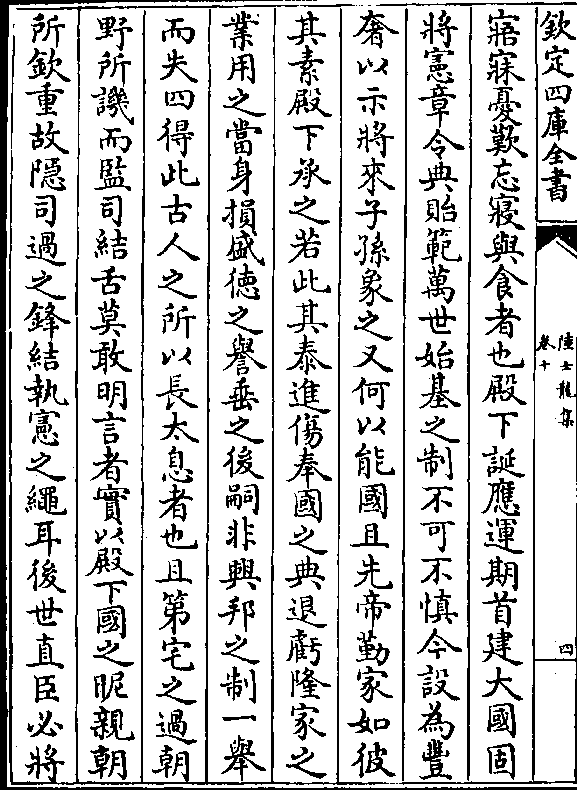 欽定四庫全書
陸士龍集
卷十
四
寤寐憂歎忘寢與食者也殿下誕應運期首建大國固
將憲章令典貽範萬世始基之制不可不慎今設為豐
奢以示將來子孫象之又何以能國且先帝勤家如彼
其素殿下承之若此其泰進傷奉國之典退虧隆家之
業用之當身損盛德之譽垂之後嗣非興邦之制一舉
而失四得此古人之所以長太息者也且第宅之過朝
野所譏而監司結舌莫敢明言者實以殿下國之昵親朝
所欽重故隱司過之鋒結執憲之繩耳後世直臣必將